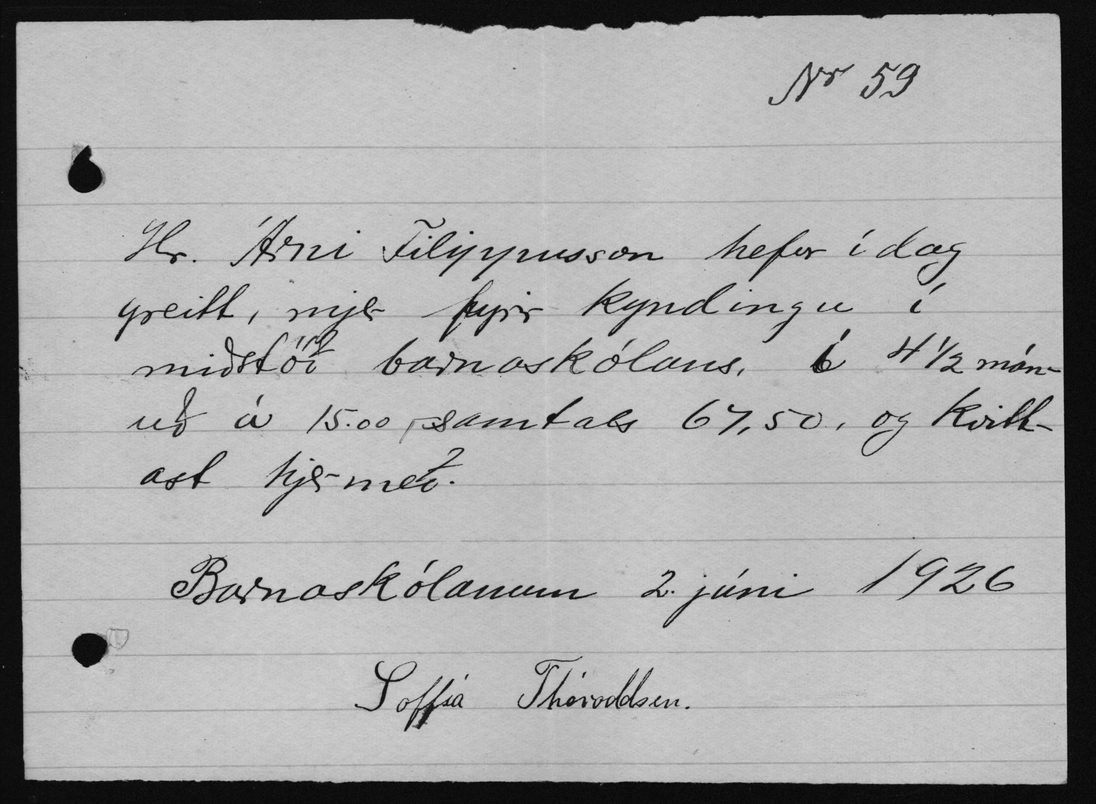 Nr 59
Hr. Árni Filippusson hefur í dag
greitt, mjer fyrir kyndingu í
miðstöð barnaskólans, í 4 1/2 mán-
uð á 15.00, samtals 67,50, og kvitt-
ast hjer með.
Barnaskólanum 2. júní 1926
Soffía Thóroddsen.